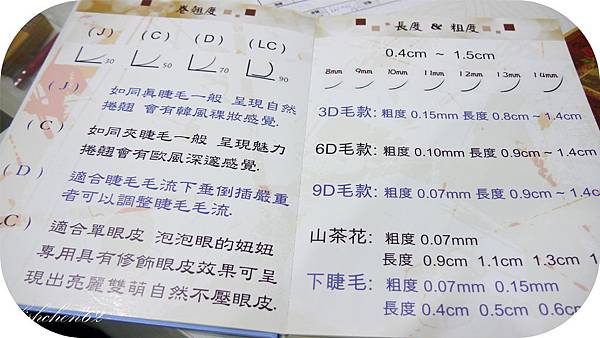 卷翹度
(J) (C) (D) (LC)
30 50 70 90
(J)
如同真睫毛一般 呈現自然
捲翹 會有韓風裸妝感覺.
(C)
如同夾睫毛一般 呈現魅力
捲翹會有歐風深邃感覺.
(D)
適合睫毛毛流下垂倒插嚴重
者可以調整睫毛毛流.
LC)
適合單眼皮 泡泡眼的妞妞
專用具有修飾眼皮效果可呈
現出亮麗雙萌自然不壓眼皮.
長度 & 粗度
0.4cm ~ 1.5cm
8mm 9mm 10mm 11mm 12mm 13mm 14mm
3D毛款: 粗度 0.15mm 長度 0.8cm ~ 1.4cm
6D毛款: 粗度 0.10mm 長度 0.9cm ~ 1.4c
9D毛款: 粗度 0.07mm 長度 0.9cm ~ 1.4c
山茶花: 粗度 0.07mm
長度 0.9cm 1.1cm 1.3cm 1
下睫毛: 粗度 0.07mm 0.15mm
長度 0.4cm 0.5cm 0.6c